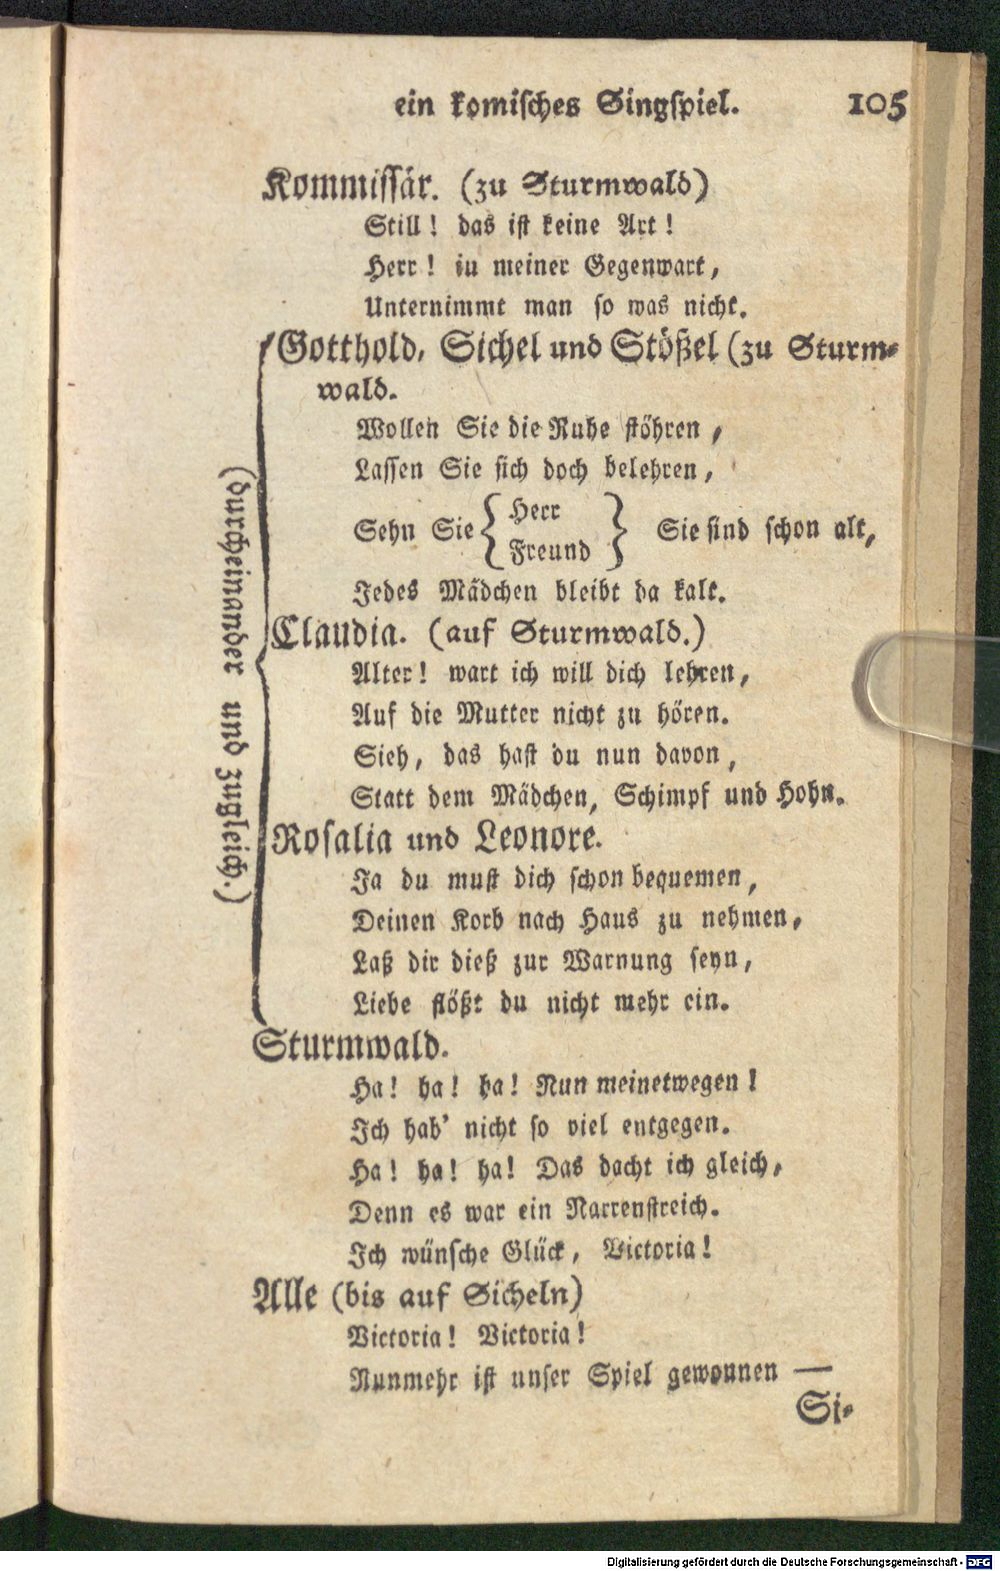 ein komisches Singspiel. 105
Kommissär. (zu Sturmwald)
Still! das ist keine Art!
Herr! in meiner Gegenwart,
Unternimmt man so was nicht.
Gotthold, Sichel und Stößel (zu Sturm-
wald.
Wollen Sie die Ruhe stöhren,
Lassen Sie sich doch belehren,
Sehn Sie { Herr
Freund } Sie sind schon alt,
Jedes Mädchen bleibt da kalt.
Claudia. (auf Sturmwald.)
Alter! wart ich will dich lehren,
Auf die Mutter nicht zu hören.
Sieh, das hast du nun davon,
Statt dem Mädchen, Schimpf und Hohn.
Rosalia und Leonore.
Ja du must dich schon bequemen,
Deinen Korb nach Haus zu nehmen,
Laß dir dieß zur Warnung seyn,
Liebe flößt du nicht mehr ein.
(durcheinander und zugleich.)
Sturmwald.
Ha! ha! ha! Nun meinetwegen!
Ich hab' nicht so viel entgegen.
Ha! ha! ha! Das dacht ich gleich,
Denn es war ein Narrenstreich.
Ich wünsche Glück, Victoria!
Alle (bis auf Sicheln)
Victoria! Victoria!
Nunmehr ist unser Spiel gewonnen —
Si-
Digitalisierung gefördert durch die Deutsche Forschungsgemeinschaft - DFG